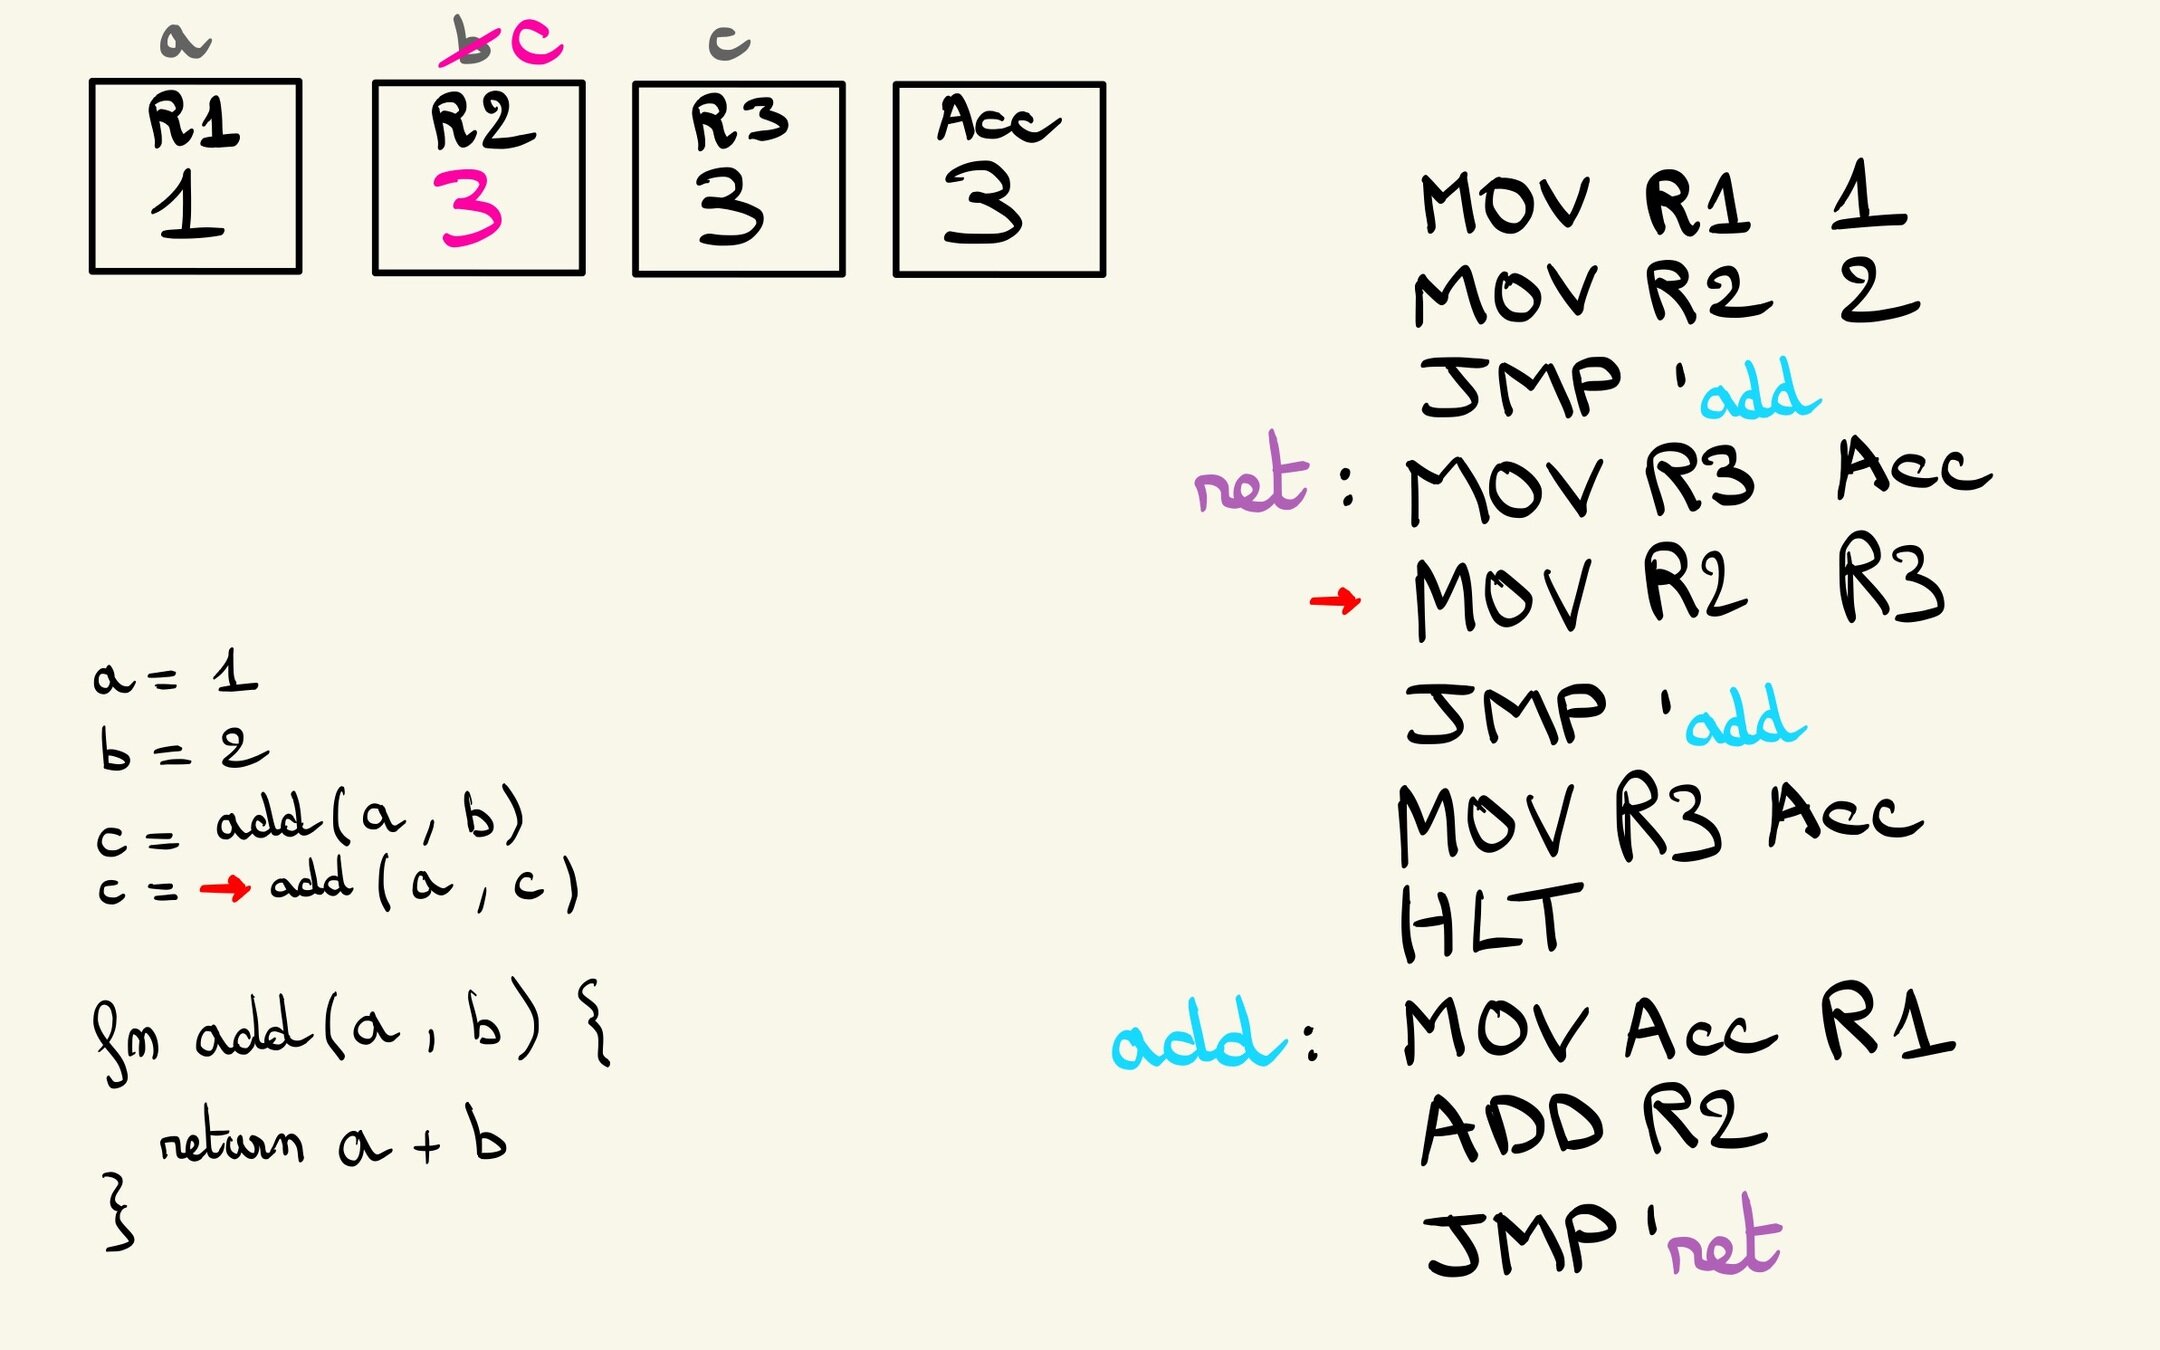 a b c c
R1 R2 R3 Acc
1 3 3 3
a = 1
b = 2
c = add(a, b)
c = → add(a, c)
fn add(a, b) {
return a + b
}
MOV R1 1
MOV R2 2
JMP 'add
ret: MOV R3 Acc
→ MOV R2 R3
JMP 'add
MOV R3 Acc
HLT
add: MOV Acc R1
ADD R2
JMP 'ret